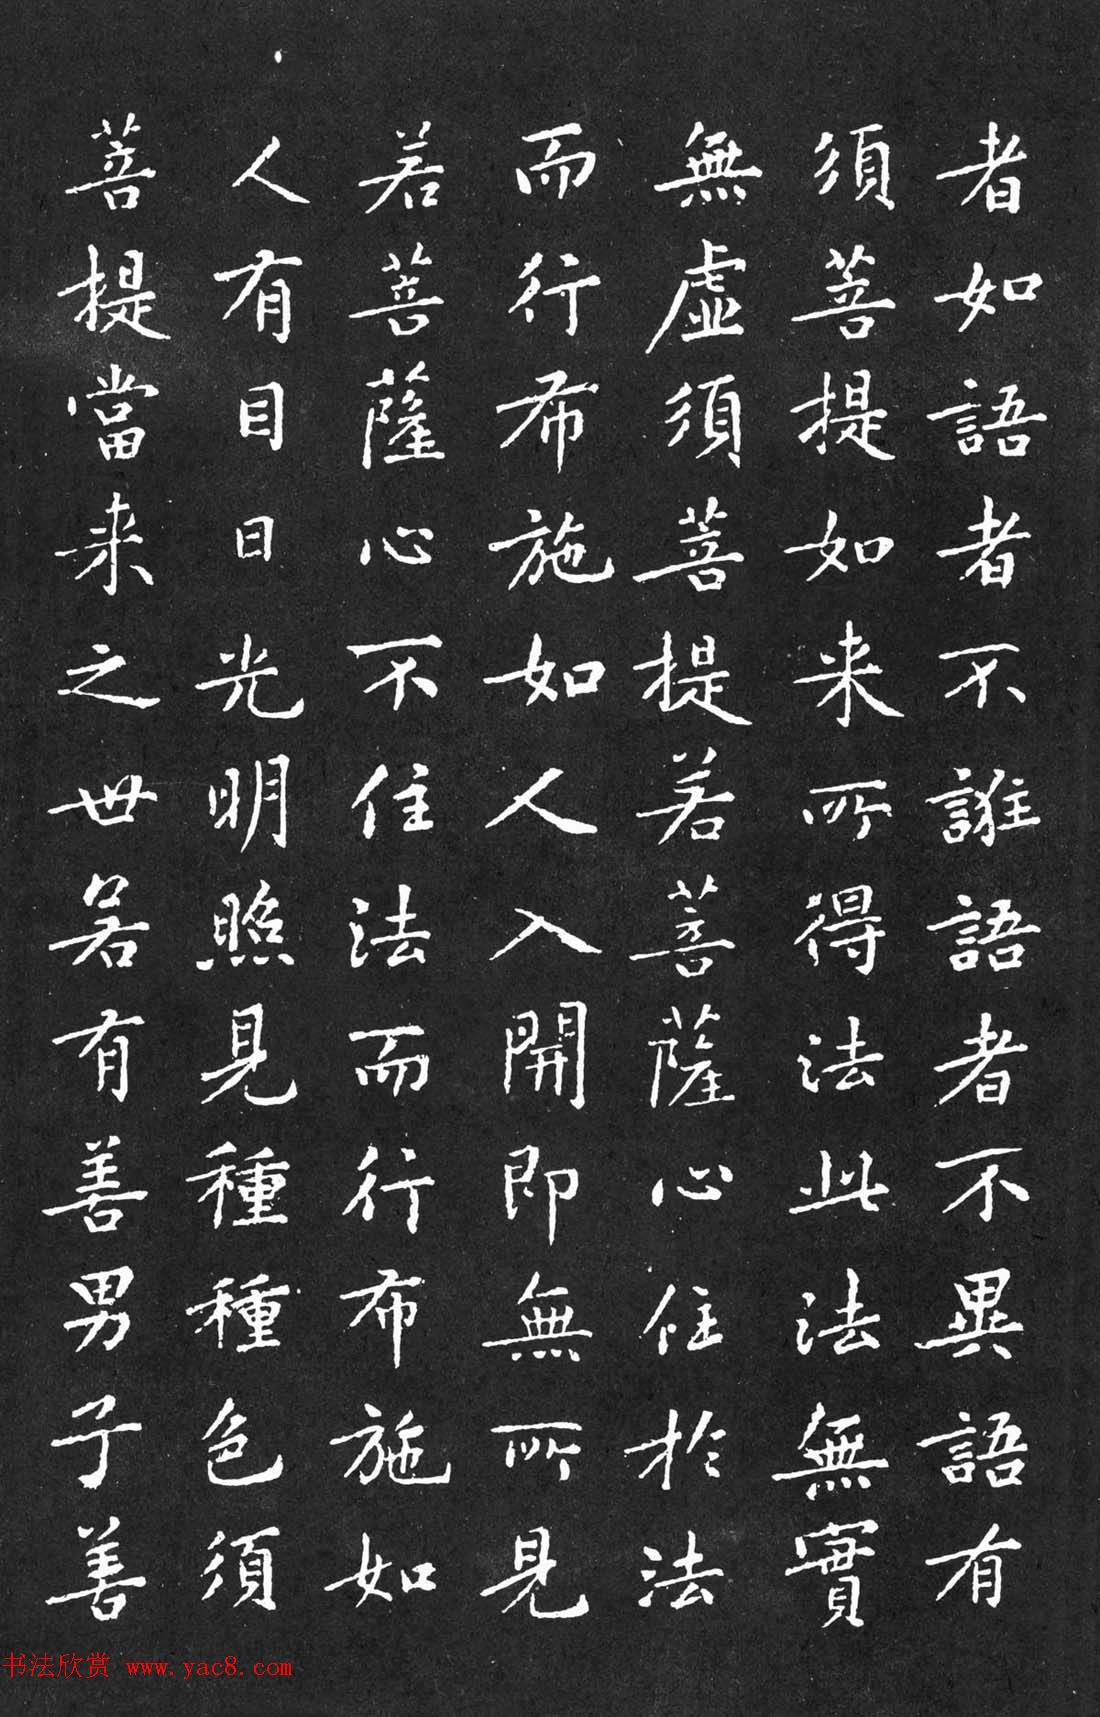 者如語者不誑語者不異語有
須菩提如来所得法此法無實
無虛須菩提若菩薩心住於法
而行布施如人入闇即無所見
若菩薩心不住法而行布施如
人有目日光明照見種種色須
菩提當来之世若有善男子善
书法欣赏 www.yac8.com